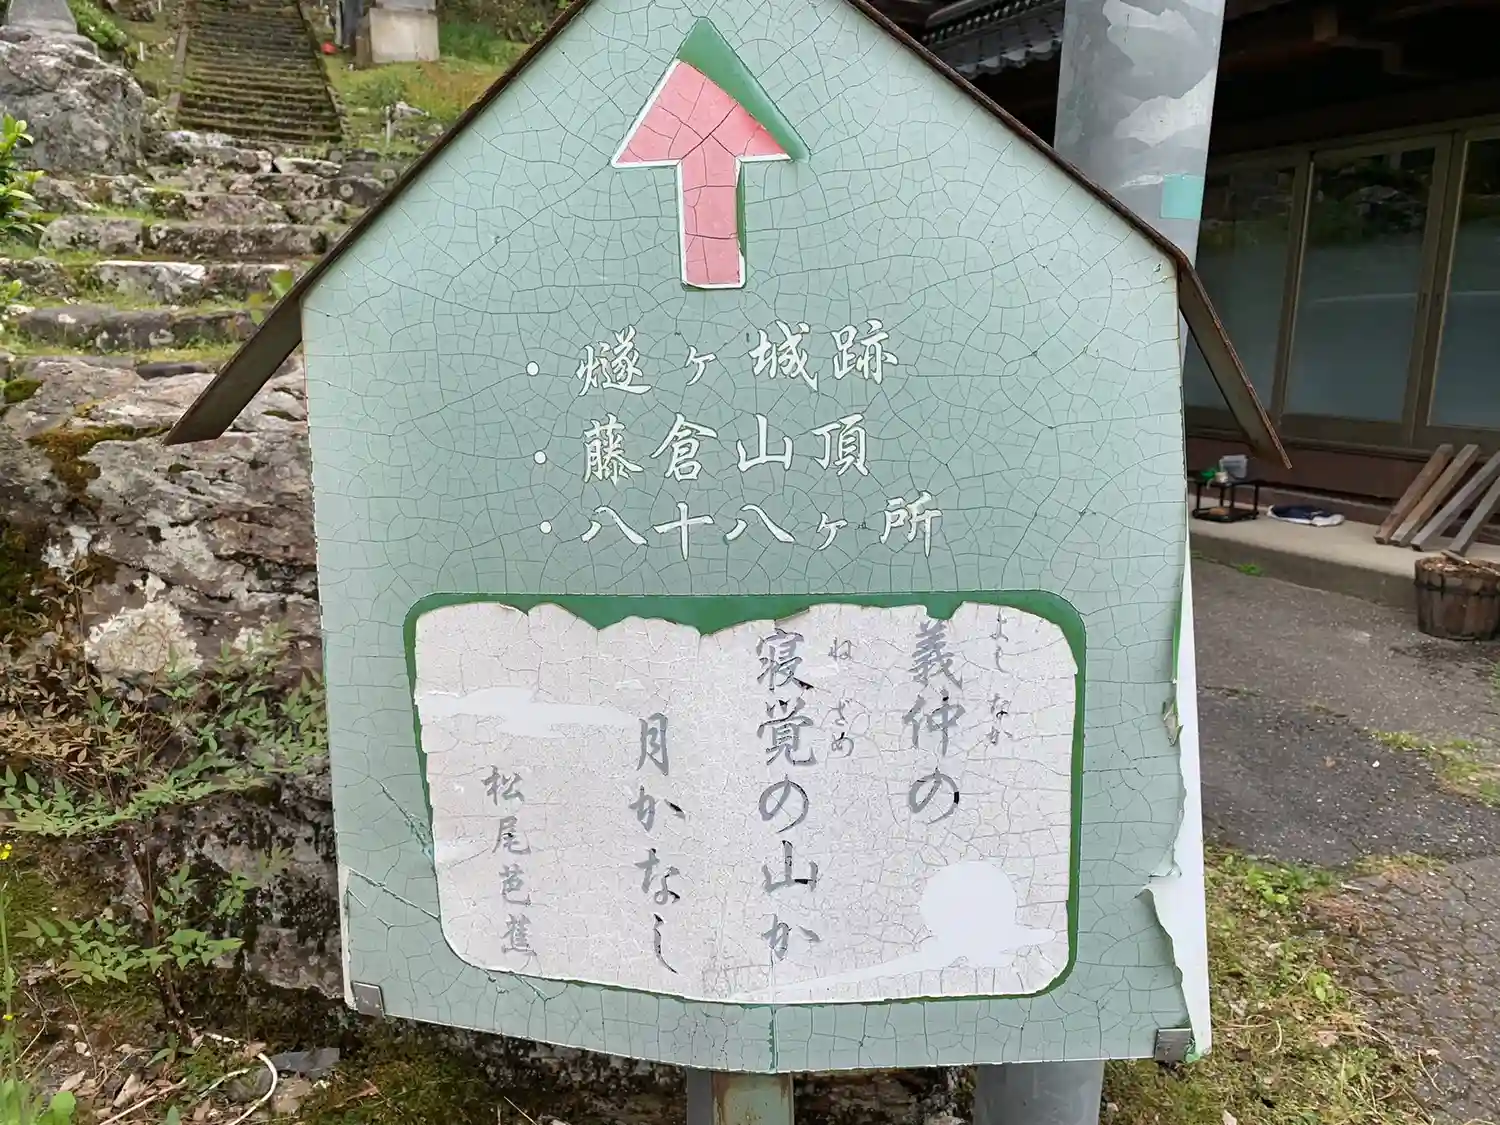 ・燧ヶ城跡
・藤倉山頂
・八十八ヶ所
よしなか
義仲の
ねざめ
寝覚の山か
月かなし
松尾芭蕉